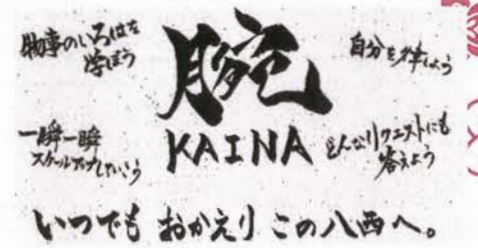 物事のいろはを
学ぼう
腕
KAINA
一瞬一瞬
スケールアップしていこう
どんなリクエストにも
答えよう
いつでも おかえり この八西へ。